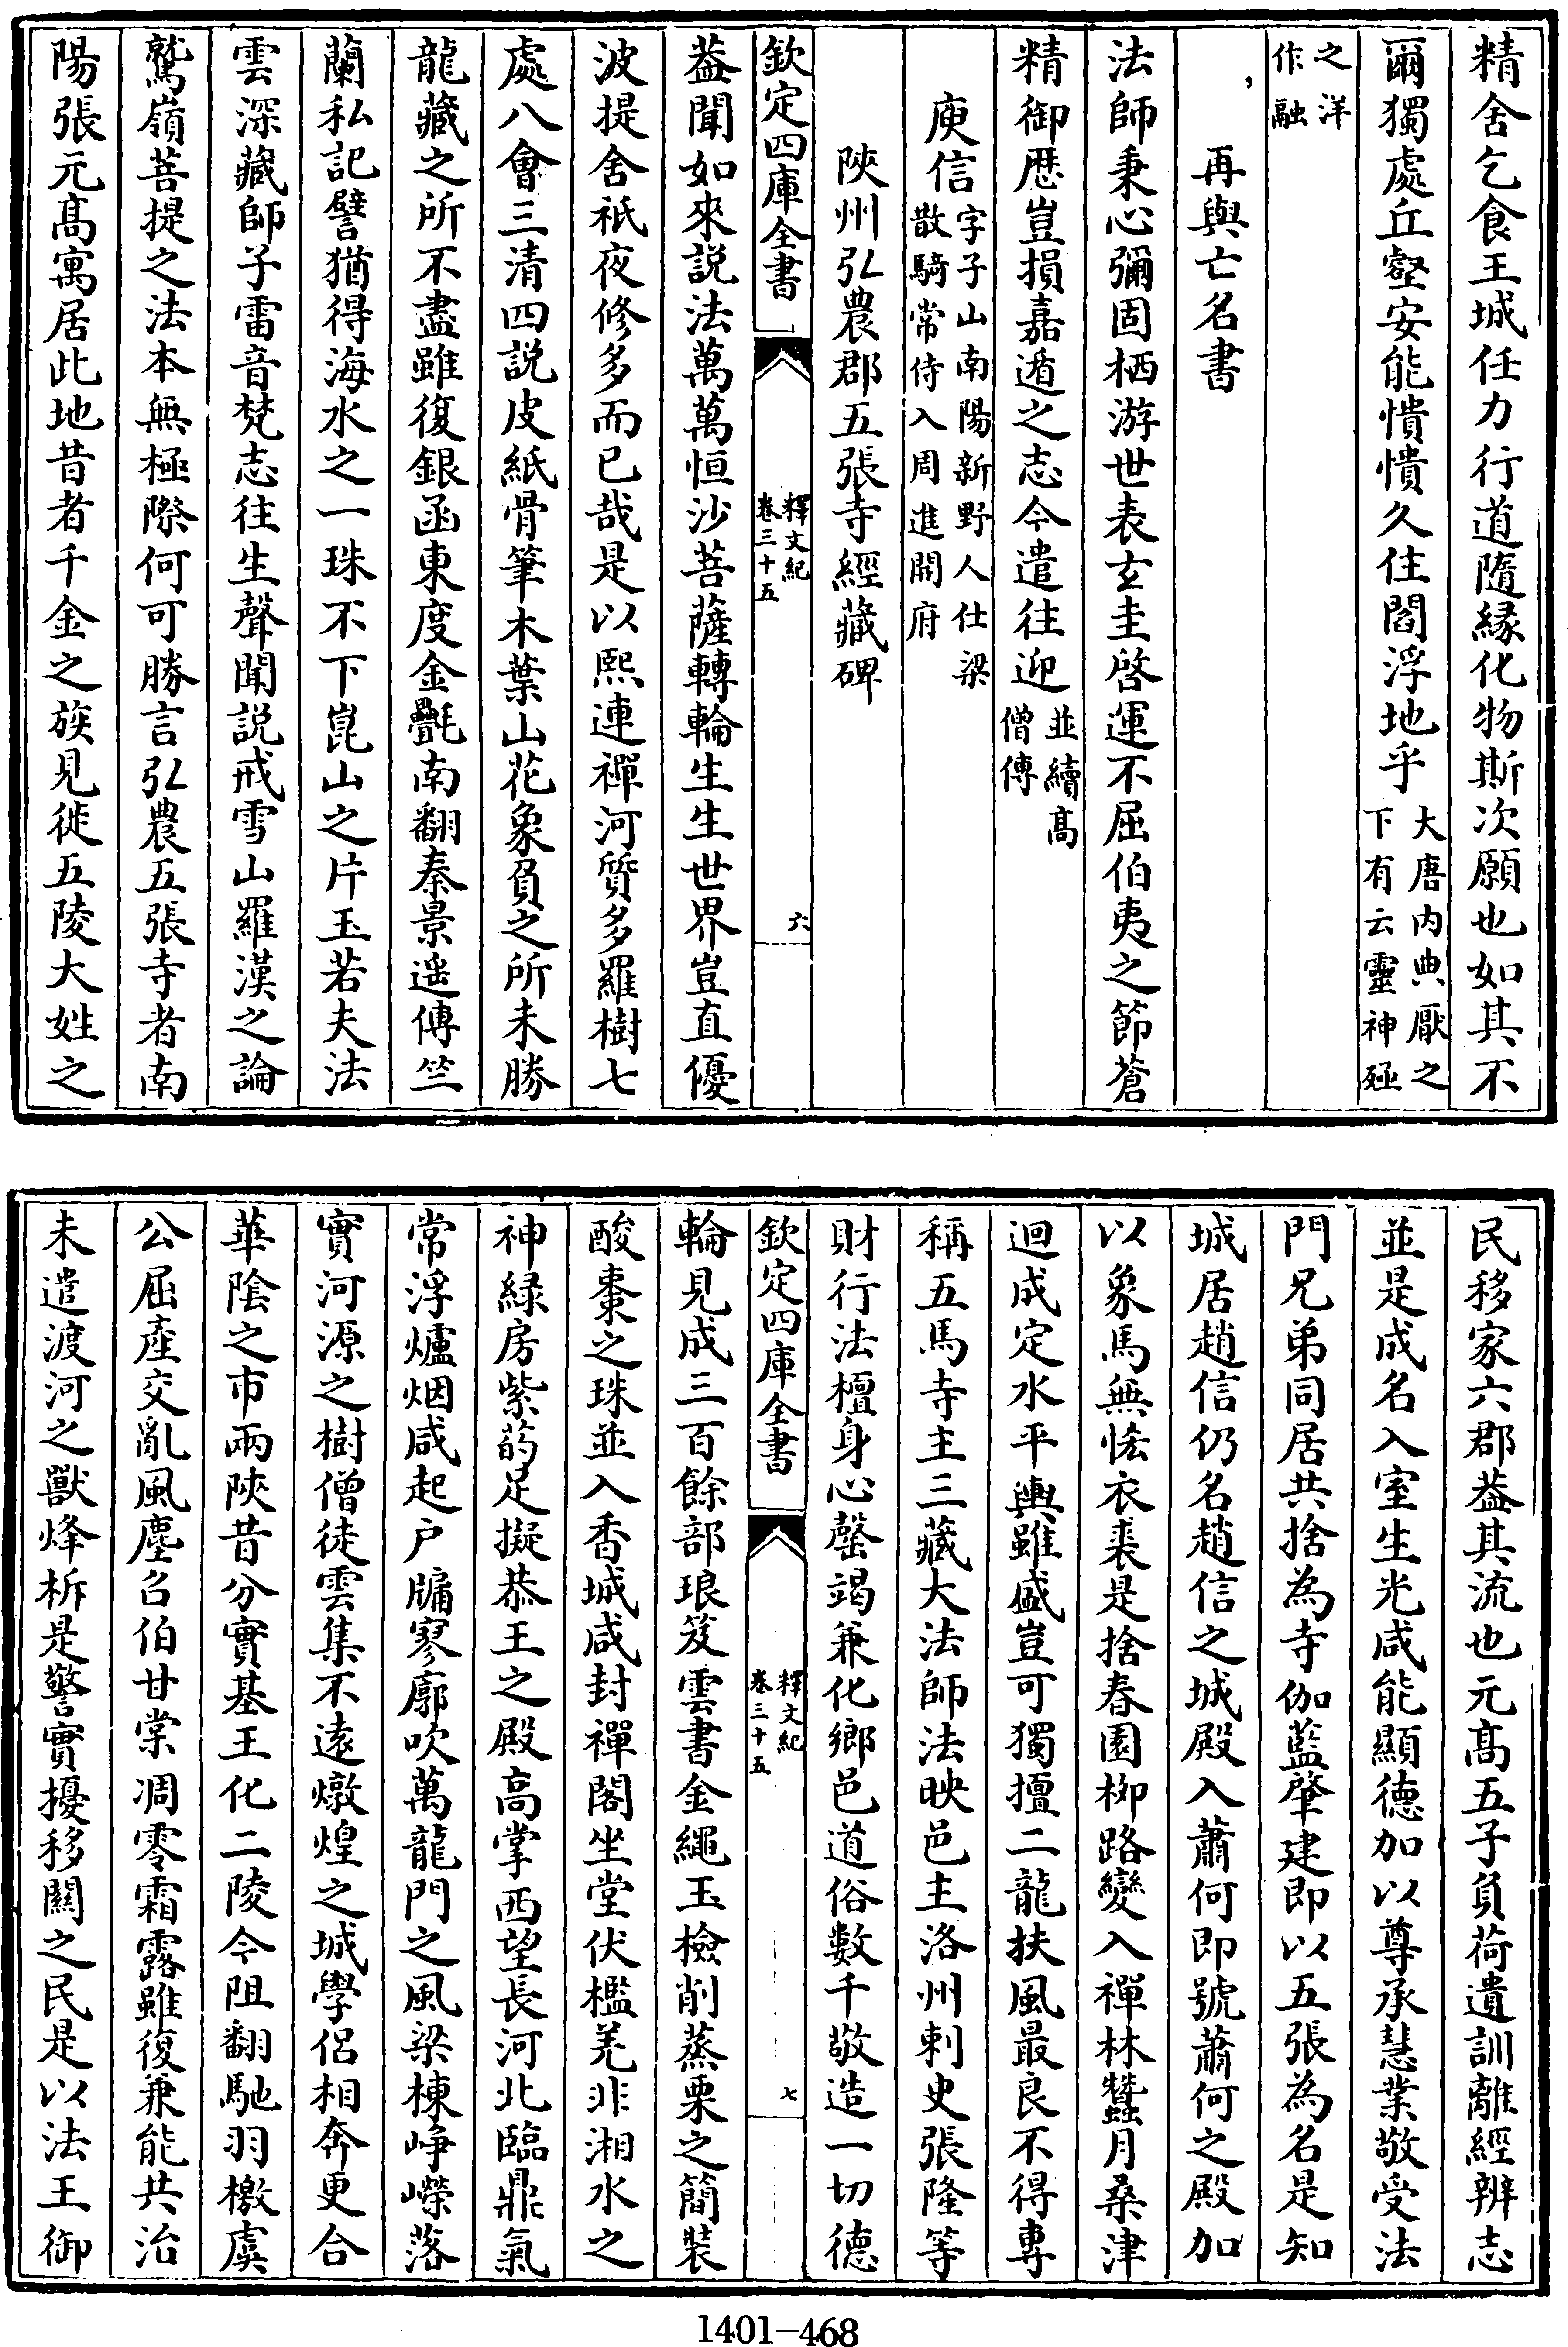 精舍乞食王城任力行道隨緣化物斯次願也如其不
爾獨處丘壑安能憒憒久住閻浮地乎大唐内典厭之下有云靈神殛
之洋作融
再與亡名書
法師秉心彌固栖游世表玄圭啓運不屈伯夷之節蒼
精御歴豈損嘉遁之志今遣往迎並續髙僧傳
庾信字子山南陽新野人仕梁散騎常侍入周進開府
陜州弘農郡五張寺經藏碑
欽定四庫全書
釋文紀
卷三十五
六
葢聞如來説法萬萬恒沙菩薩轉輪生生世界豈直優
波提舍祇夜修多而已哉是以熙連禪河質多羅樹七
處八會三清四説皮紙骨筆木葉山花象負之所未勝
龍藏之所不盡雖復銀函東度金㲲南翻秦景遥傳竺
蘭私記譬猶得海水之一珠不下崑山之片玉若夫法
雲深藏師子雷音梵志往生聲聞説戒雪山羅漢之論
鷲嶺菩提之法本無極際何可勝言弘農五張寺者南
陽張元髙寓居此地昔者千金之族見徙五陵大姓之
民移家六郡葢其流也元髙五子負荷遺訓離經辨志
並是成名入室生光咸能顯德加以尊承慧業敬受法
門兄弟同居共捨為寺伽藍肇建即以五張為名是知
城居趙信仍名趙信之城殿入蕭何即號蕭何之殿加
以象馬無恡衣裘是捨春園柳路變入禪林蠶月桑津
迴成定水平輿雖盛豈可獨擅二龍扶風最良不得專
稱五馬寺主三藏大法師法映邑主洛州刺史張隆等
財行法檀身心罄竭兼化鄉邑道俗數千敬造一切德
欽定四庫全書
釋文紀
卷三十五
七
輪見成三百餘部琅笈雲書金繩玉檢削蒸栗之簡裝
酸棗之珠並入香城咸封禪閣坐堂伏檻羌非湘水之
神緑房紫菂足擬恭王之殿高掌西望長河北臨鼎氣
常浮爐烟咸起户牖寥廓吹萬龍門之風梁棟崢嶸落
實河源之樹僧徒雲集不遠燉煌之城學侶相奔更合
華陰之市兩陜昔分實基王化二陵今阻翻馳羽檄虞
公屈產交亂風塵召伯甘棠凋零霜露雖復兼能共治
未遣渡河之獸烽柝是警實擾移關之民是以法王御
1401-468